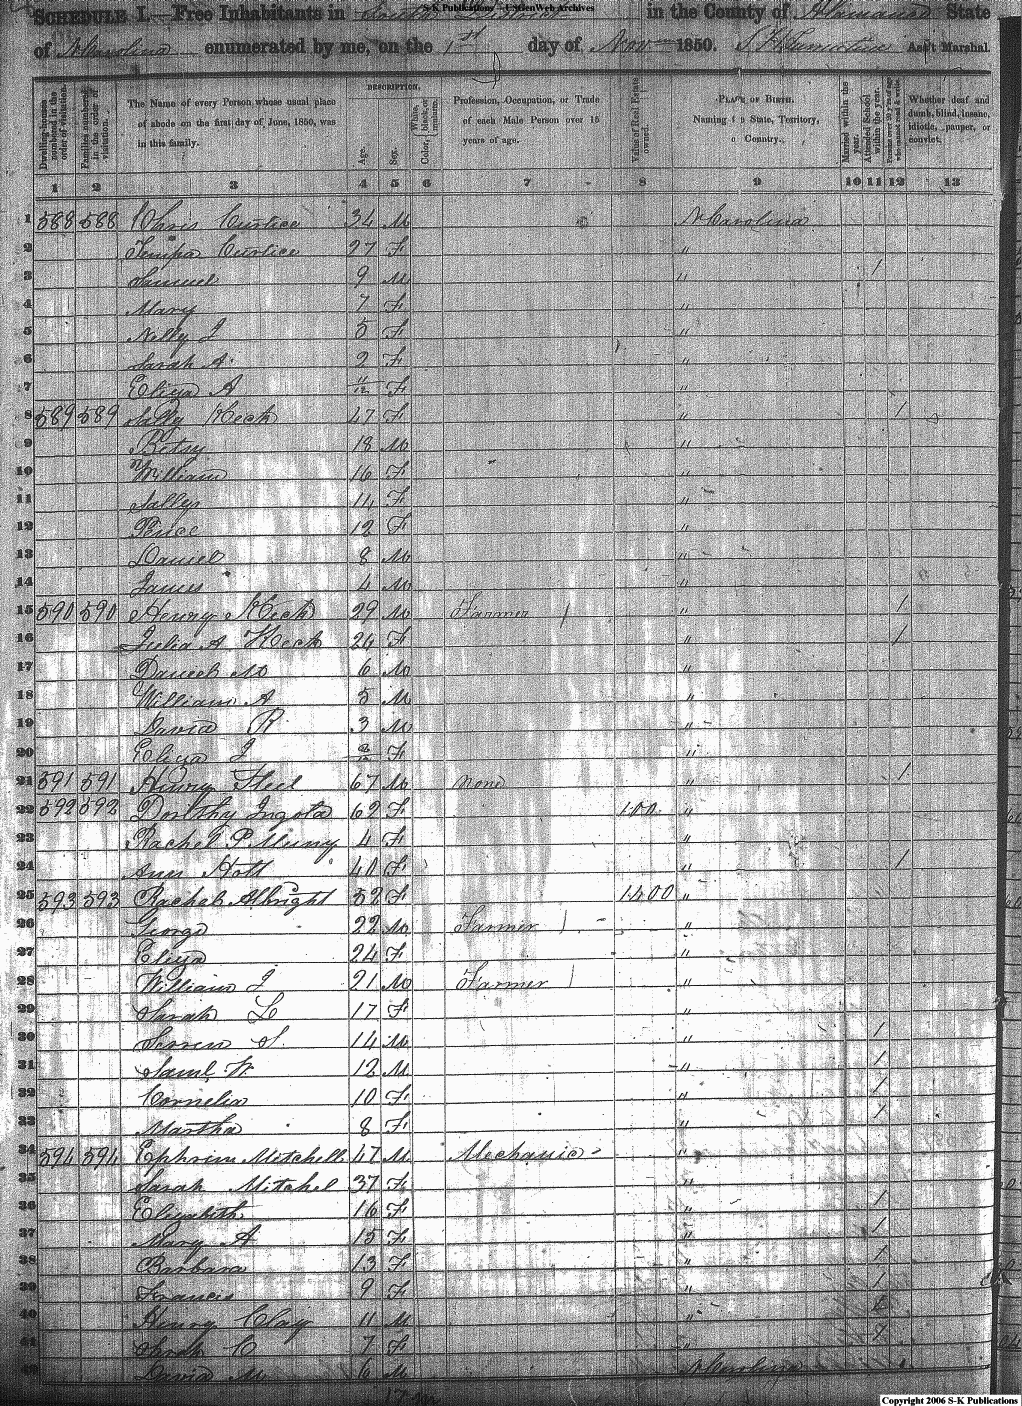 S-K Publications - USGenWeb Archives
SCHEDULE I.—Free Inhabitants in South District in the County of Alamance State
of N Carolina enumerated by me, on the 1st day of Nov 1850. Ass't Marshal.
Dwelling-houses numbered in the order of visitation.
Families numbered in the order of visitation.
The Name of every Person whose usual place of abode on the first day of June, 1850, was in this family.
DESCRIPTION.
Age.
Sex.
Color, White, black, or mulatto.
Profession, Occupation, or Trade of each Male Person over 15 years of age.
Value of Real Estate owned.
PLACE OF BIRTH. Naming the State, Territory, or Country.
Married within the year.
Attended School within the year.
Persons over 20 y'rs of age who cannot read & write.
Whether deaf and dumb, blind, insane, idiotic, pauper, or convict.
1 2 3 4 5 6 7 8 9 10 11 12 13
1 588 588 Chris Curtice 34 M N Carolina
2 Tempa Curtice 27 F "
3 Samuel 9 M " 1
4 Mary 7 F "
5 Nelly J 5 F "
6 Sarah A. 2 F "
7 Eliza A 11/12 F "
8 589 589 Sally Keck 47 F " 1
9 Betsy 18 M "
10 William 16 F "
11 Sally 14 F "
12 12 F "
13 Daniel 8 M "
14 James 4 M "
15 590 590 Henry Keck 29 M Farmer " 1
16 Julia A Keck 24 F " 1
17 Daniel M 6 M "
18 William A 5 M "
19 David R 3 M "
20 Eliza J F "
21 591 591 Henry 67 M none " 1
22 592 592 Dorothy 62 F 100 "
23 Rachel P 4 F "
24 Ann Holt 40 F " 1
25 593 593 Rachel Albright 52 F 1400 "
26 George 22 M Farmer "
27 Eliza 24 F "
28 William J 21 M Farmer "
29 Sarah L 17 F "
30 S. 14 M " 1
31 Saml W 12 M " 1
32 Cornelia 10 F " 1
33 Martha 8 F " 1
34 594 594 Ephrim Mitchell 47 M Mechanic "
35 Sarah Mitchel 37 F "
36 Elizabeth 16 F " 1
37 Mary A 15 F " 1
38 Barbara 13 F " 1
39 Francis 9 F " 1
40 Henry Clay 11 M "
41 Sarah C 7 F "
42 David M 6 M N Carolina
Copyright 2006 S-K Publications